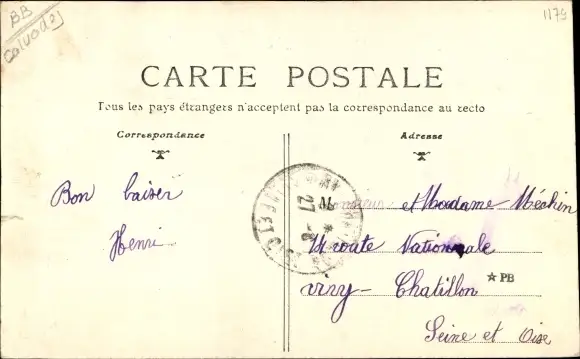 BB
Calvados
1179
CARTE POSTALE
Tous les pays étrangers n'acceptent pas la correspondance au recto
Correspondance
Adresse
Bon baiser
Henri
Monsieur et Madame Méchin
route Nationale
Viry - Chatillon
★ PB
Seine et Oise
27